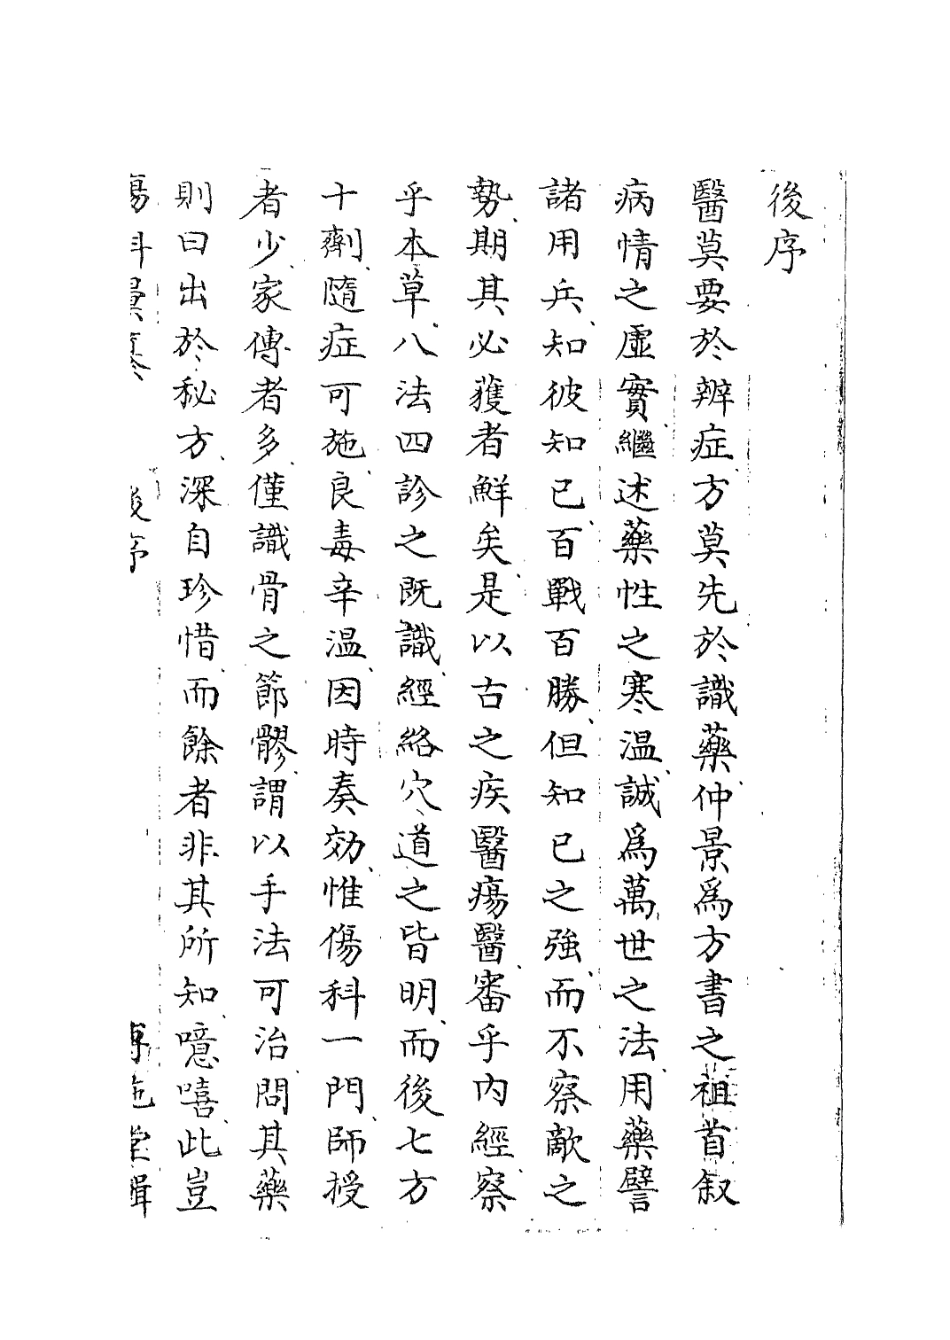 後序
醫莫要於辨症方莫先於識藥仲景爲方書之祖首叙
病情之虛實繼述藥性之寒溫誠爲萬世之法用藥譬
諸用兵知彼知己百戰百勝但知己之強而不察敵之
勢期其必獲者鮮矣是以古之疾醫瘍醫審乎內經察
乎本草八法四診之既識經絡穴道之皆明而後七方
十劑隨症可施良毒辛溫因時奏効惟傷科一門師授
者少家傳者多僅識骨之節髎謂以手法可治問其藥
則曰出於秘方深自珍惜而餘者非其所知噫嘻此豈
傷科彙纂 後序 博施堂輯